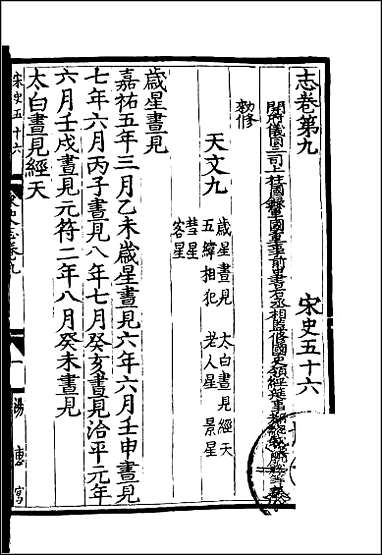 志卷第九　宋史五十六
開府儀同三司上柱國錄軍國重事前中書右丞相監修國史領經筵事都總裁臣脫脫等奉
勑修
天文九
歲星晝見　太白晝見經天
五緯相犯　老人星　景星
彗星
客星
歲星晝見
嘉祐五年三月乙未歲星晝見六年六月壬申晝見
七年六月丙子晝見八年七月癸亥晝見治平元年
六月壬戌晝見元符二年八月癸未晝見
太白晝見經天
宋史五十六
史志卷九
一